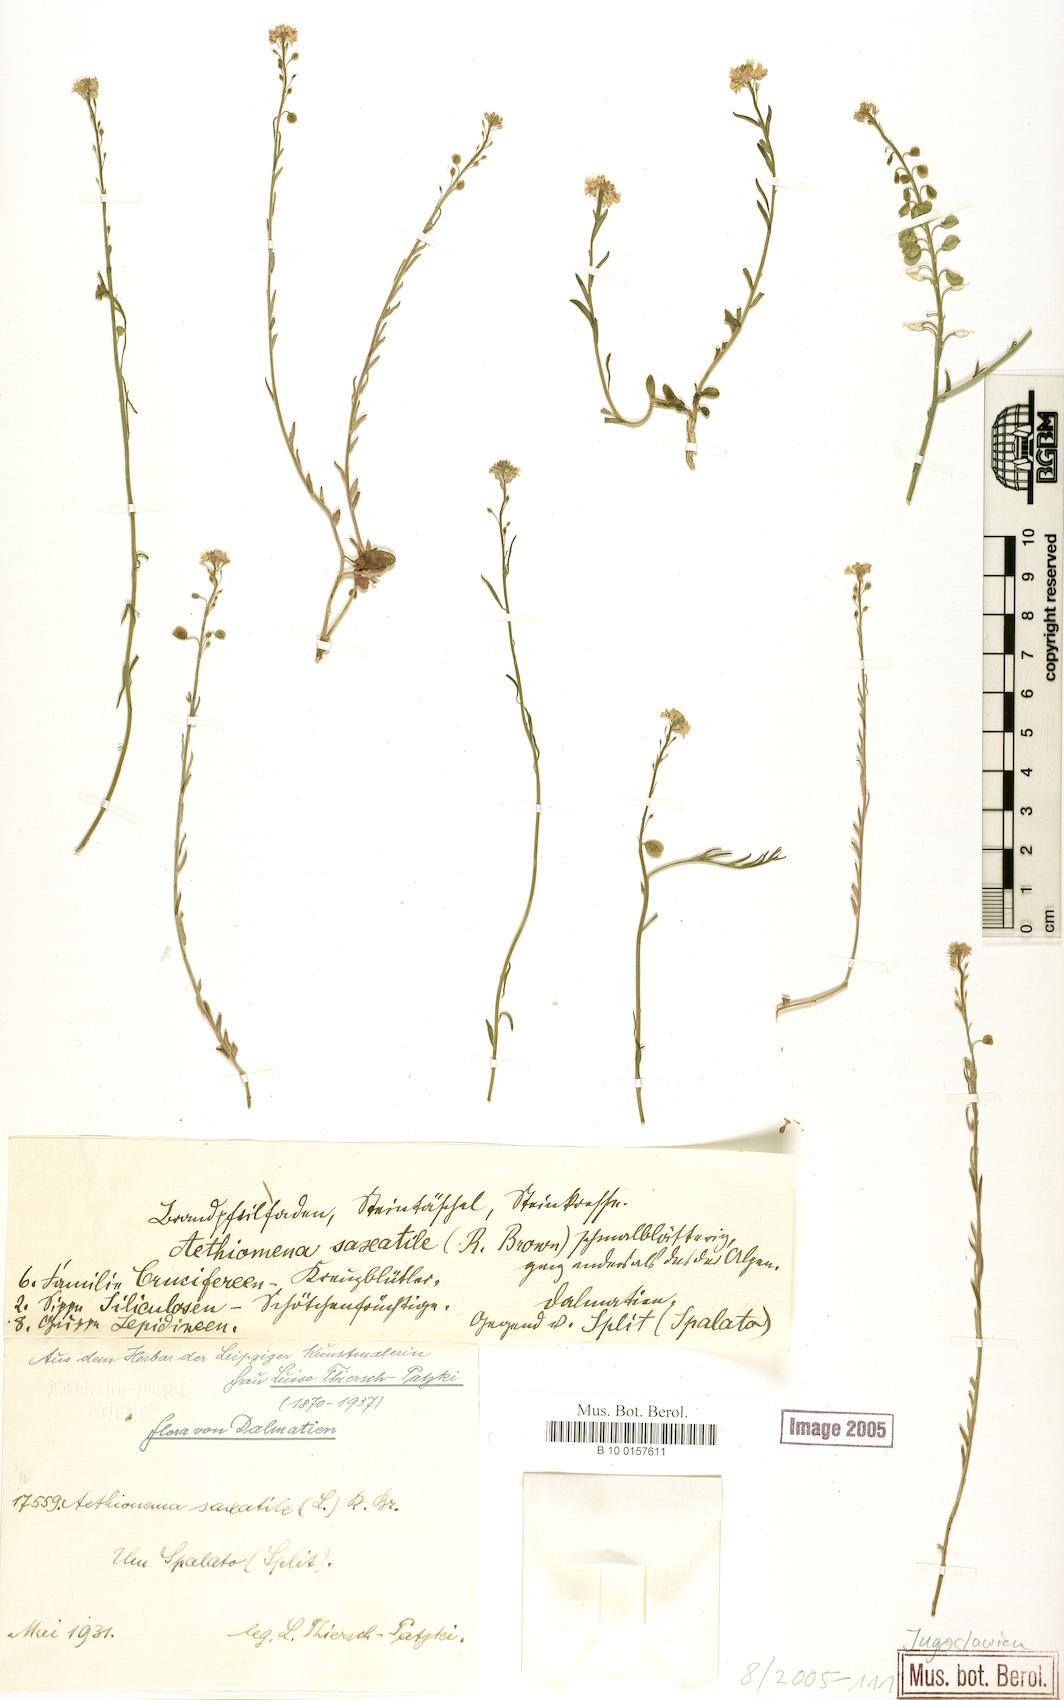 BGBM
copyright reserved
10
9
8
7
6
5
4
3
2
1
0
cm
Brandpfeilfaden, Steintäschel, Steinkresse.
Aethiomena saxatile (R. Brown) schmalblätterig,
ganz anders als das der Alpen.
6. Familie Crucifereen - Kreuzblütler.
2. Sippe Siliculosen - Schötchenfrüchtige.
Dalmatien,
8. Gruppe Lepidineen.
Gegend v. Split (Spalato)
Aus dem Herbar der Leipziger Kunstmalerin
Frau Luise Thiersch-Patzki
(1870-1937)
Leipzig
Flora von Dalmatien
17559. Aethionema saxatile (L.) R. Br.
Um Spalato (Split).
Mai 1931.
leg. L. Thiersch-Patzki.
Mus. Bot. Berol.
B 10 0157611
Image 2005
Jugoslawien
Mus. bot. Berol.
8/2005-111